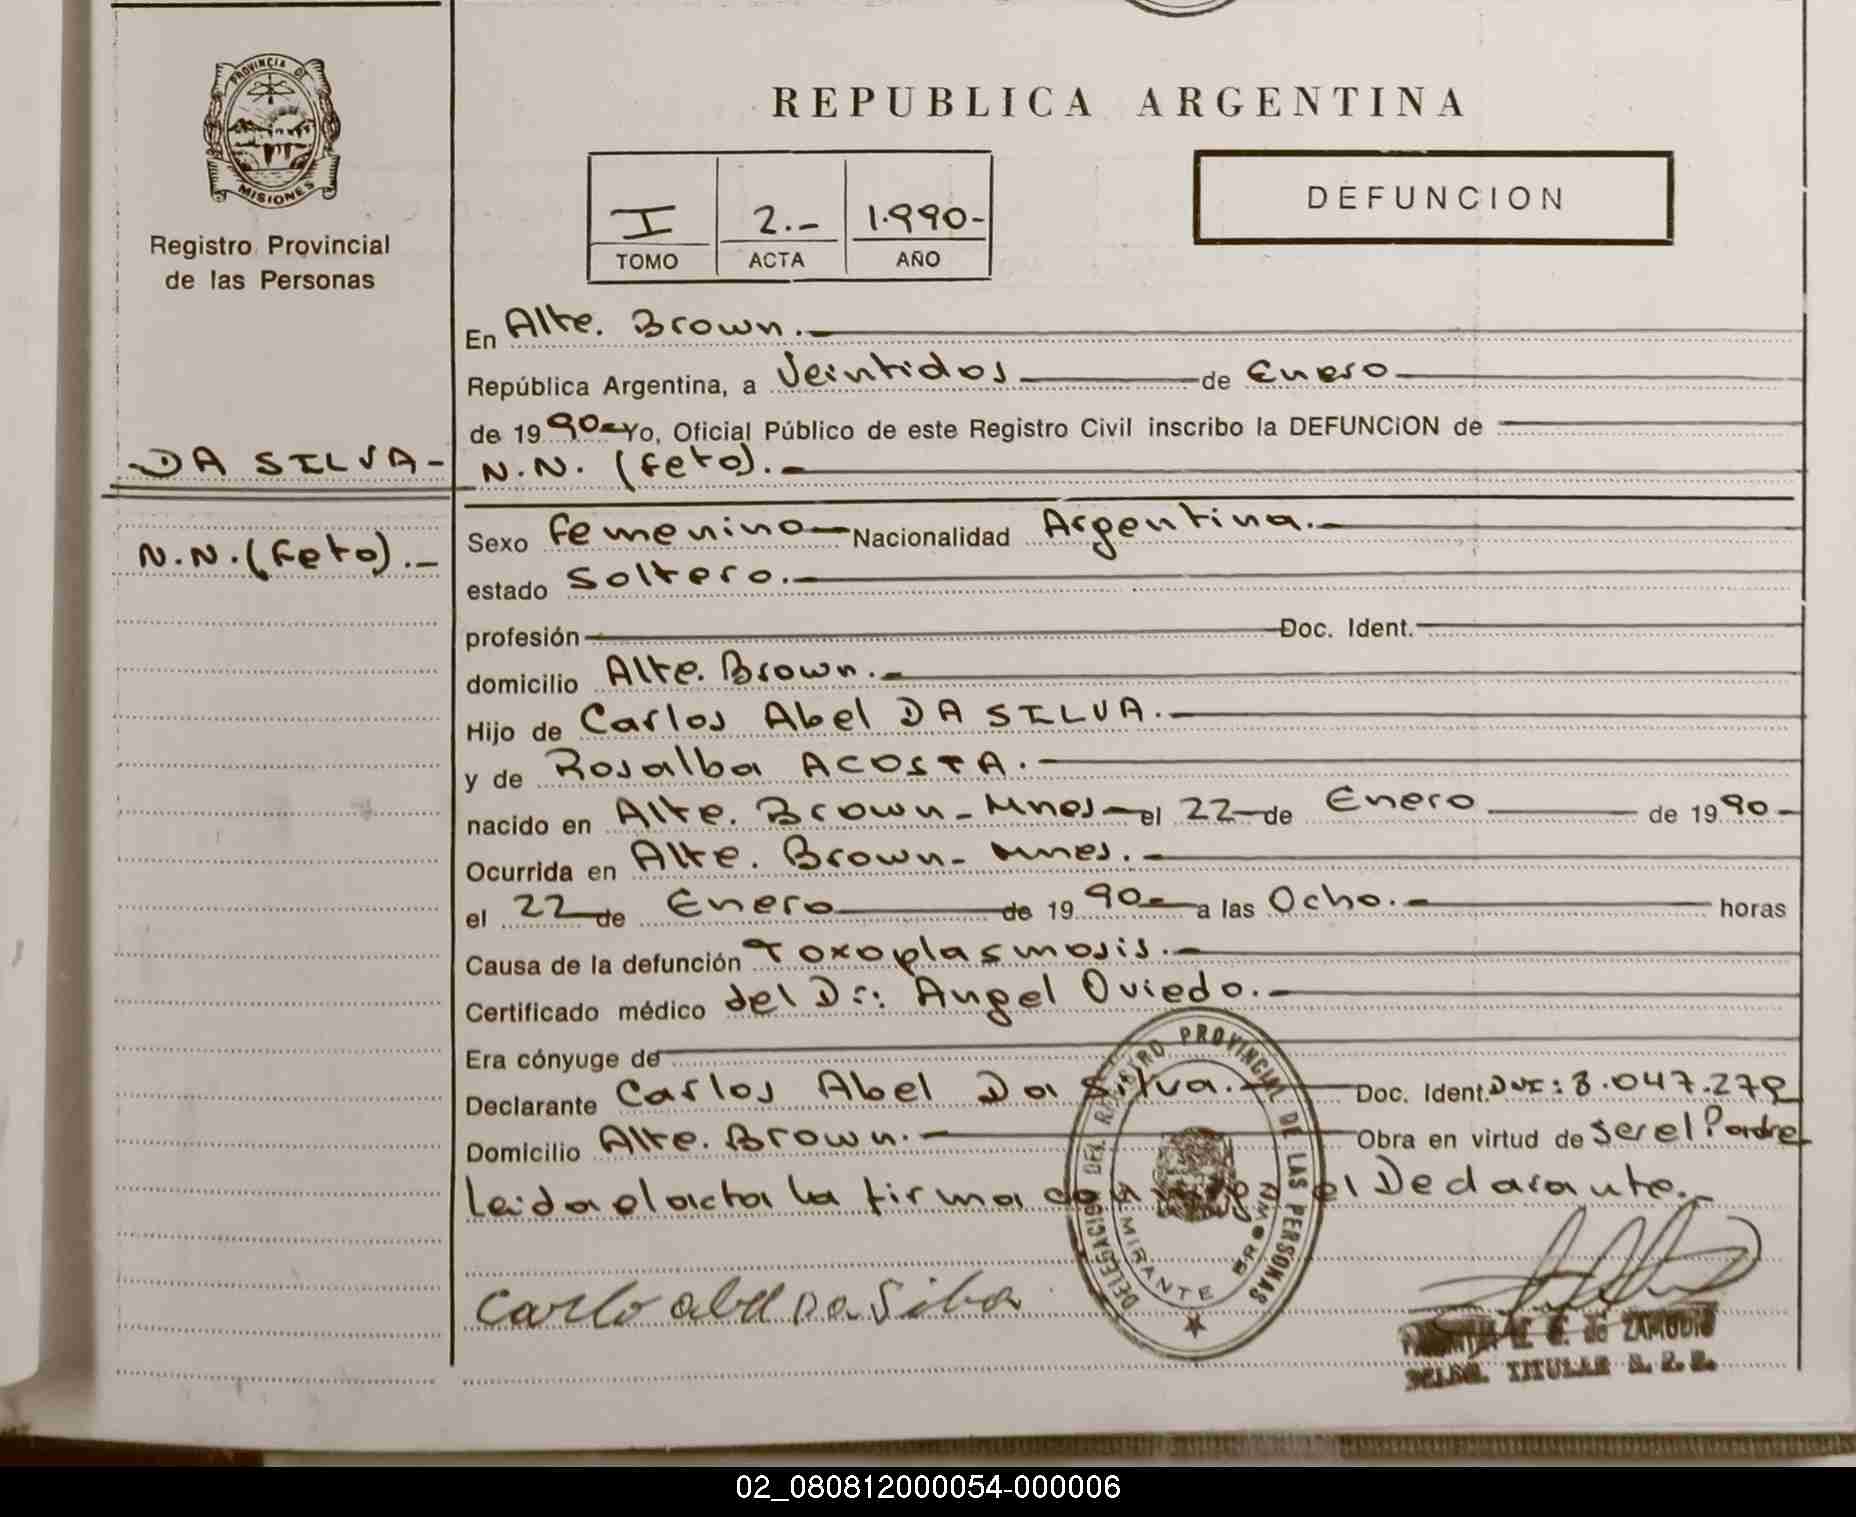 PROVINCIA DE
MISIONES
Registro Provincial
de las Personas
DA SILVA-
N.N. (Feto).-
REPUBLICA ARGENTINA
I 2.- 1.990-
TOMO ACTA AÑO
DEFUNCION
En Alte. Brown.-
República Argentina, a Veintidos de Enero
de 1990- Yo, Oficial Público de este Registro Civil inscribo la DEFUNCION de
N.N. (Feto).-
Sexo Femenino- Nacionalidad Argentina.-
estado Soltero.-
profesión Doc. Ident.
domicilio Alte. Brown.-
Hijo de Carlos Abel DA SILVA.-
y de Rosalba ACOSTA.-
nacido en Alte. Brown-Mnes- el 22- de Enero de 1990-
Ocurrida en Alte. Brown- Mnes.-
el 22- de Enero de 1990- a las Ocho.- horas
Causa de la defunción Toxoplasmosis.-
Certificado médico del Dr: Angel Oviedo.-
Era cónyuge de
Declarante Carlos Abel Da Silva.- Doc. Ident. DNI: 8.047.279
Domicilio Alte. Brown.- Obra en virtud de ser el Padre
Leida el acta la firma el Declarante.-
DELEGACION DEL REGISTRO PROVINCIAL DE LAS PERSONAS
ALMIRANTE BROWN
Carlo abel Da Silva
de ZAMUDIO
TITULAR
02_080812000054-000006